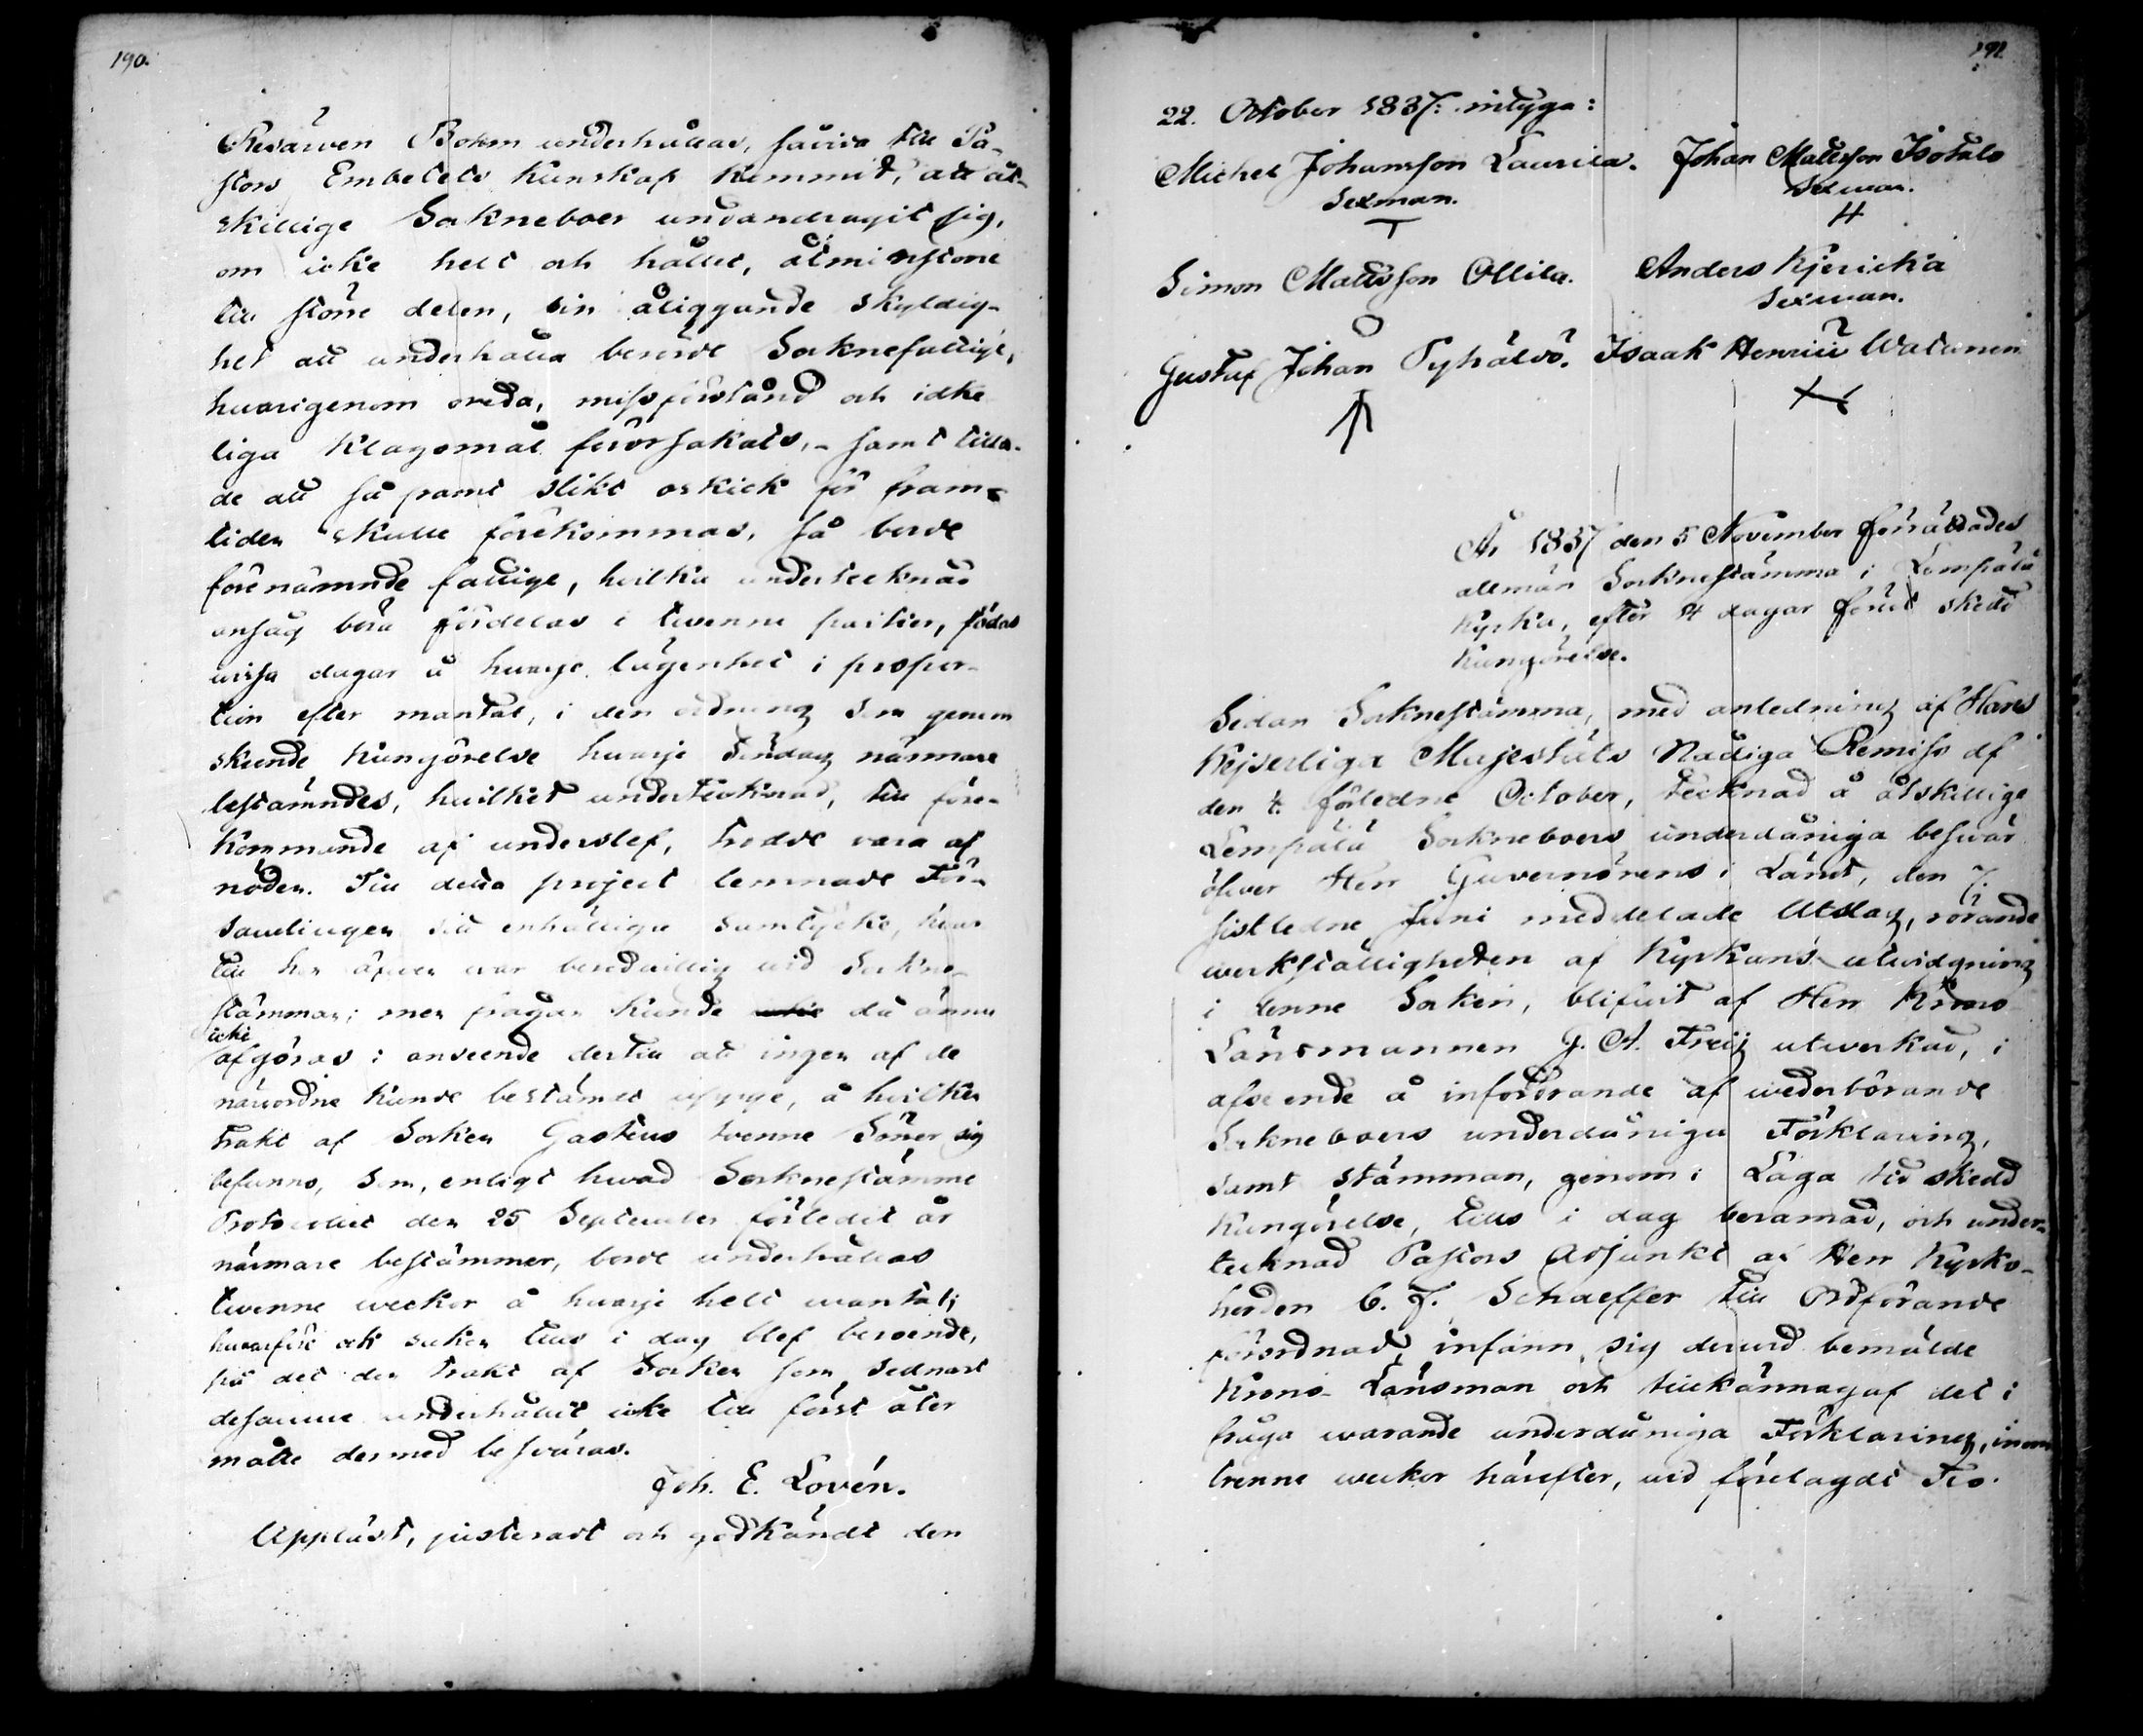 190.
Resarwen Bohm underhållas, såsom till Pa-
stors Embetets kunskap kommit, att åt-
skillige Sockneboer undandragit sig,
om icke helt och hållet, åtminstone
till större delen, sin åliggande skyldig-
het att underhålla berörde Socknefattige,
hvarigenom oreda, missförstånd och idke
liga klagomål förorsakats, - samt tilla-
de att så framt slikt oskick för fram-
tiden skulle förekommas, så borde
förenämnde fattige, hvilka undertecknad
ansåg böra fördelas i tvenne partier, födas
vissa dagar å hvarje lägenhet i propor-
tion efter mantal, i den ordning som genom
skeende kungörelse hvarje Söndag närmare
bestämdes, hvilket undertecknad, till före-
kommande af underslef, trodde vara af
nöden. Till detta project lemnade För-
samlingen sitt enhälliga samtycke, hvar
till hon äfven var beredvillig vid Sockne-
stämman; men frågan kunde då ännu
icke
afgöras i anseende dertill att ingen af de
närvordne kunde bestämdt uppge, å hvilken
trakt af Socken Gasteus tvenne Söner sig
befunno, som, enligt hvad Socknestämme
Protocollet den 25 September förledit år
närmare bestämmer, borde underhållas
tvenne veckor å hvarje helt mantal;
hvarföre ock saken till i dag blef beroende,
på det den trakt af Socken som sednast
desamme underhållit icke till först åter
måtte dermed besväras.
Joh. E. Lovén.
Uppläst, justeradt och godkändt den
191.
22. October 1837: intyga:
Michel Johansson Laurila. Johan Mattsson Isotalo
Sexman. Sexman.
Simon Mattsson Ollila. Anders Kjerickä
Sexman.
Gustaf Johan Pyhältö. Isaak Henric Watanen
År 1837 den 5 November förrättades
allmän Socknestämma i Lempälä
Kyrka, efter 14 dagar förut skedd
Kungörelse.
Sedan Socknestämma, med anledning af Hans
Kejserliga Majestäts Nådiga Remiss af
den 4 förledne October, tecknad å åtskillige
Lempälä Sockneboers underdåniga besvär
öfver Herr Guvernörens i Länet, den 7
sistledne Juni meddelade Utslag, rörande
verkställigheten af Kyrkans utvidgning
i denne Socken, blifvit af Herr Krono
Länsmannen G. A. Freij utverkad, i
afseende å infordrande af wederbörande
Sockneboers underdåniga Förklaring,
samt stämman, genom i Laga tid skedd
Kungörelse, tills i dag beramad, och under-
tecknad Pastors Adjunkt af Herr Kyrko-
herden C. J. Schaeffer till Ordförande
förordnad, infann sig dervid bemälde
Krono Länsman och tillkännagaf det i
fråga warande underdåniga Förklaring, inom
trenne weckor härefter, vid förelagdt Tio